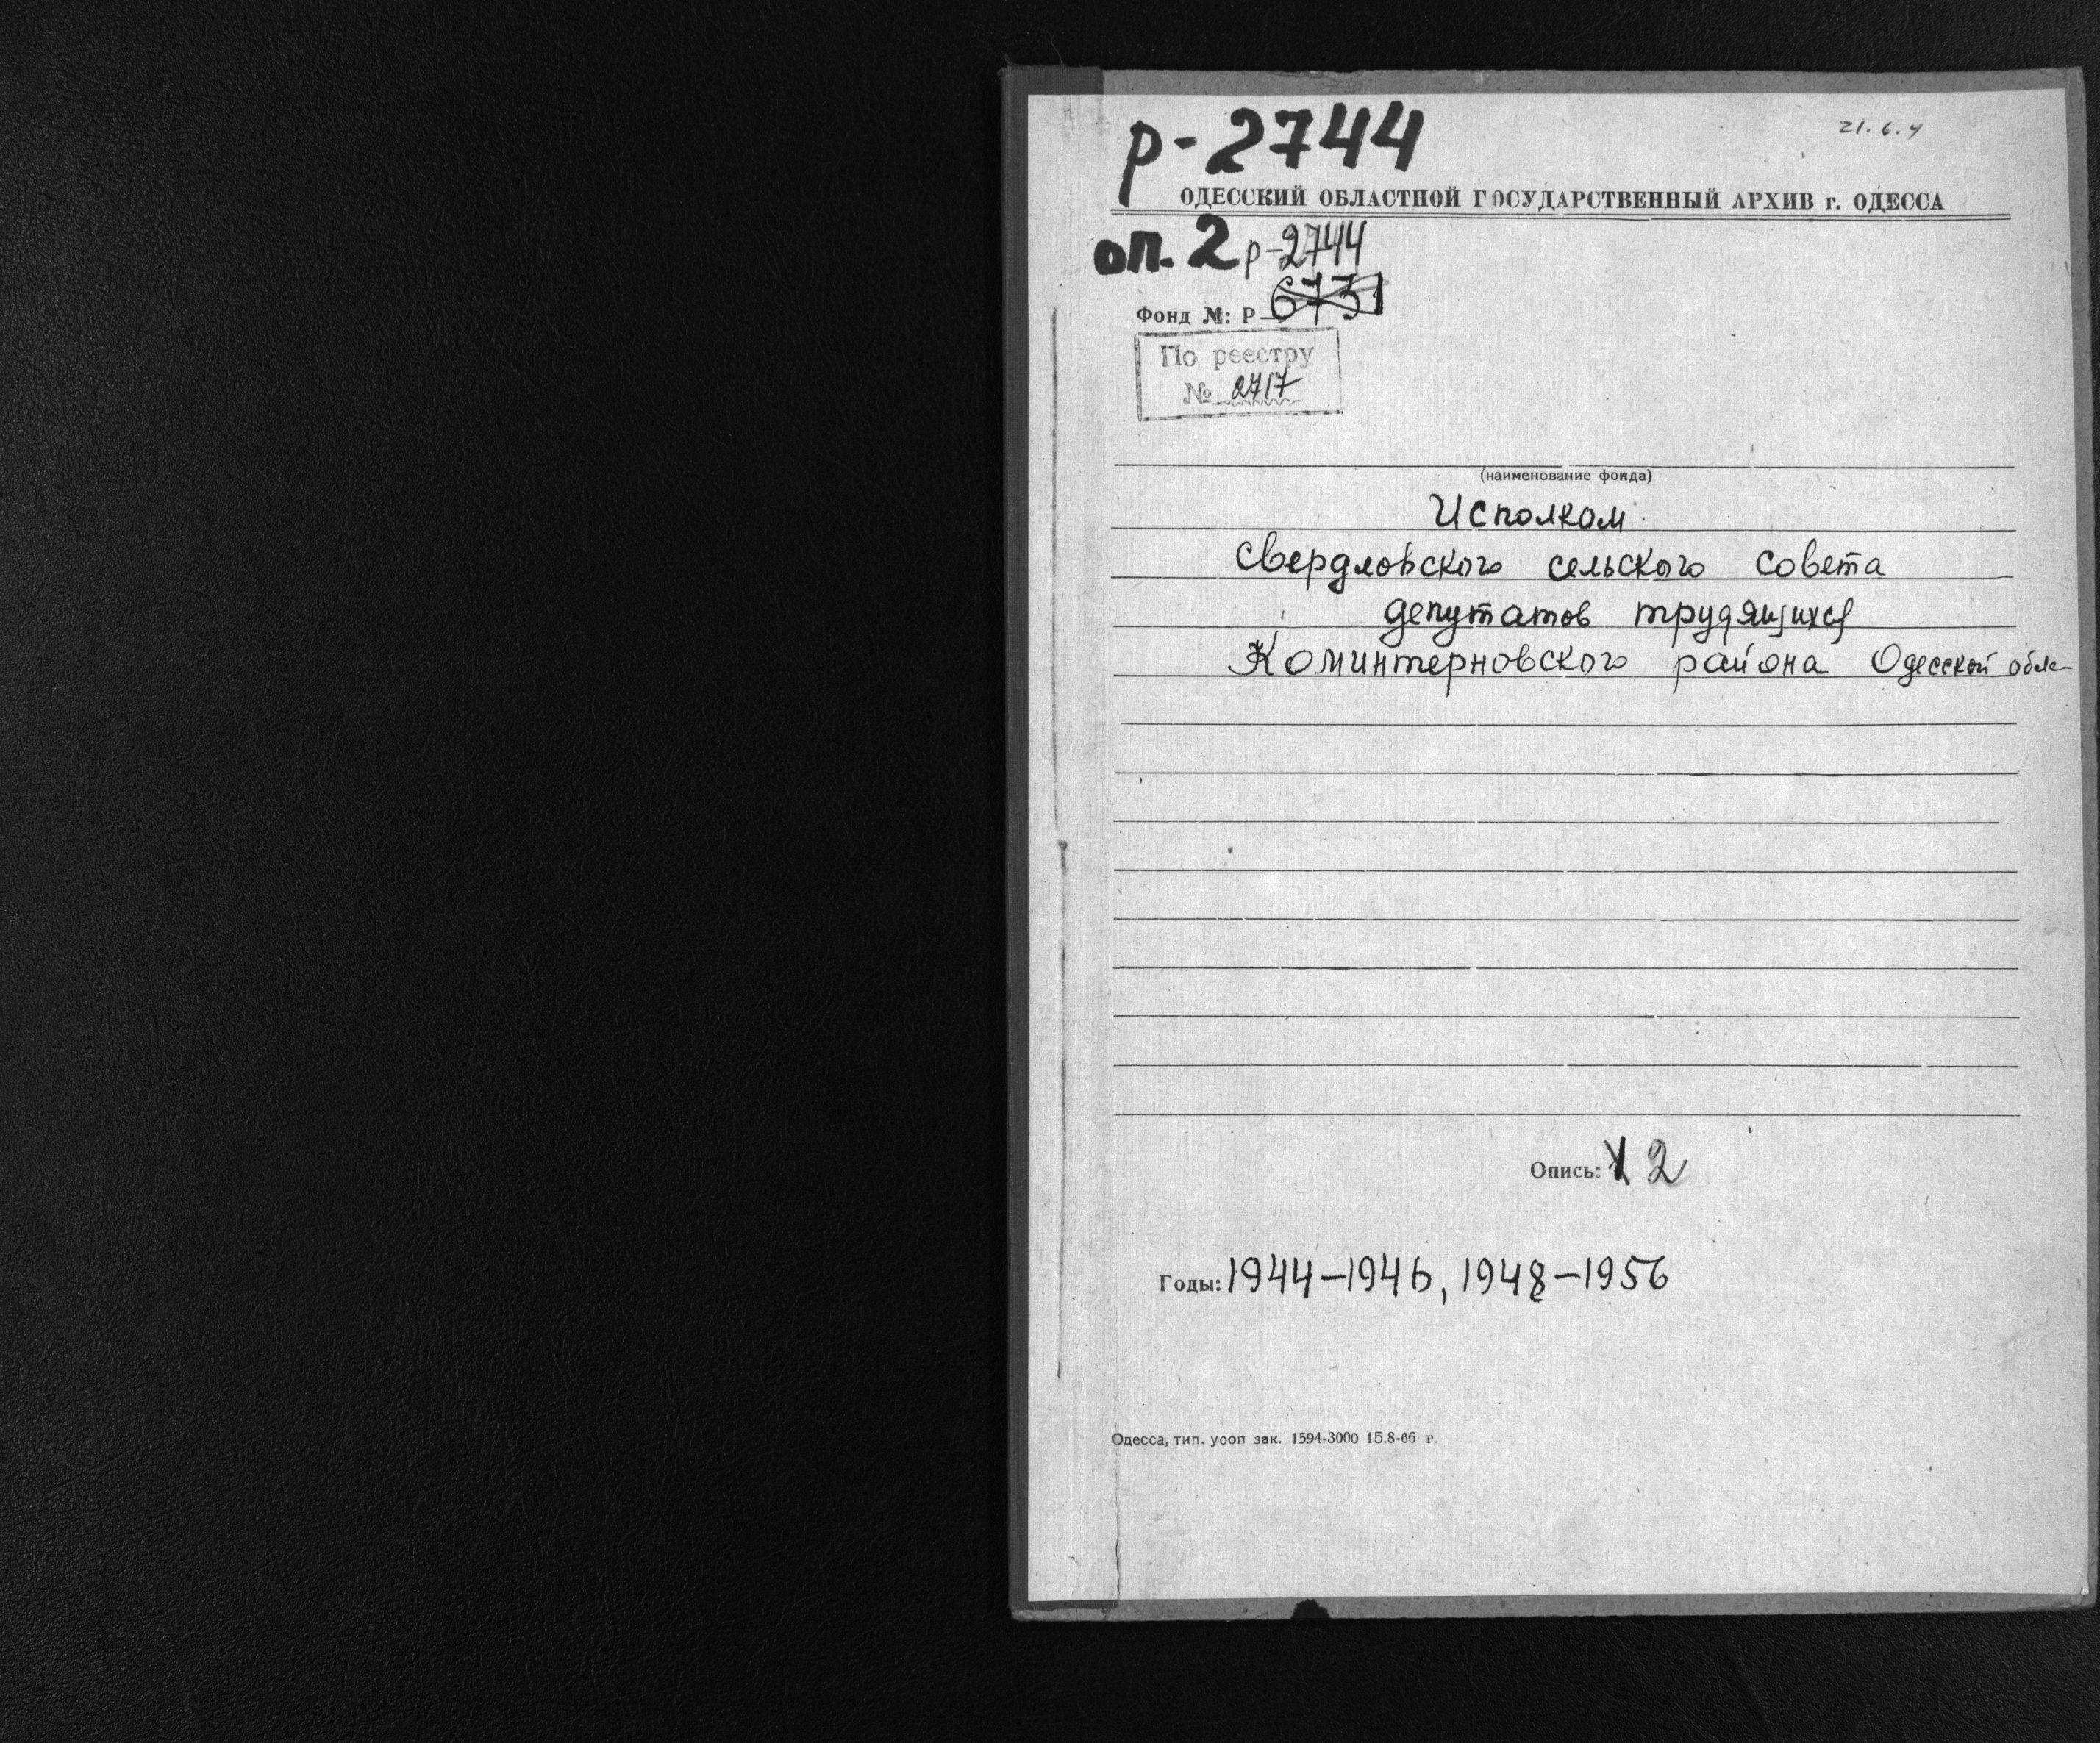 р-2744
21.6.4
ОДЕССКИЙ ОБЛАСТНОЙ ГОСУДАРСТВЕННЫЙ АРХИВ г. ОДЕССА
оп. 2 р-2744
Фонд №: Р-6731
По реестру
№ 2717
(наименование фонда)
Исполком
Свердловского сельского совета
депутатов трудящихся
Коминтерновского района Одесской обл-
Опись: 1 2
Годы: 1944-1946, 1948-1956
Одесса, тип. уооп зак. 1594-3000 15.8-66 г.